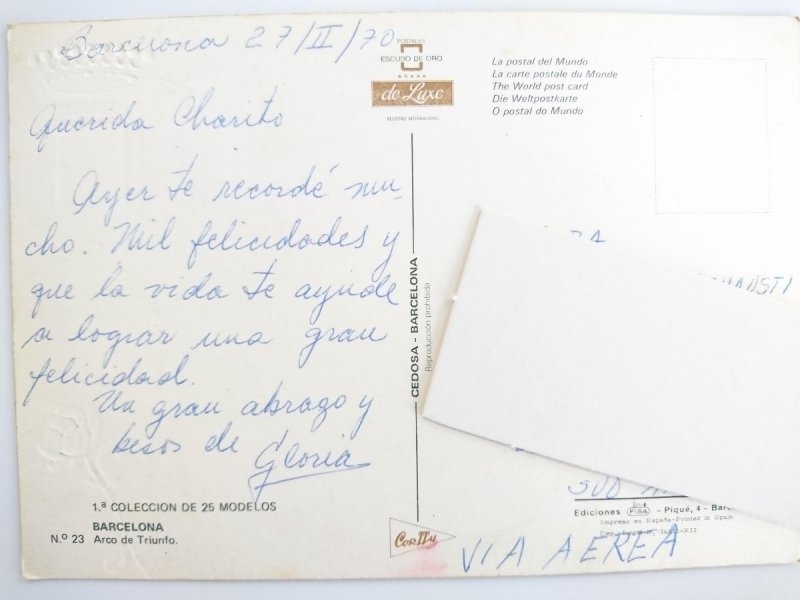 Barcelona 27/II/70
Querida Charito
Ayer te recordé mu-
cho. Mil felicidades y
que la vida te ayude
a lograr una gran
felicidad.
Un gran abrazo y
besos de
Gloria
1.ª COLECCION DE 25 MODELOS
BARCELONA
N.º 23 Arco de Triunfo.
POSTALES
ESCUDO DE ORO
de Luxe
REGISTRO INTERNACIONAL
CEDOSA - BARCELONA
Reproducción prohibida
La postal del Mundo
La carte postale du Monde
The World post card
Die Weltpostkarte
O postal do Mundo
SUD
Ediciones FISA - Piqué, 4 - Barc
Impreso en España-Printed in Spain
VIA AEREA